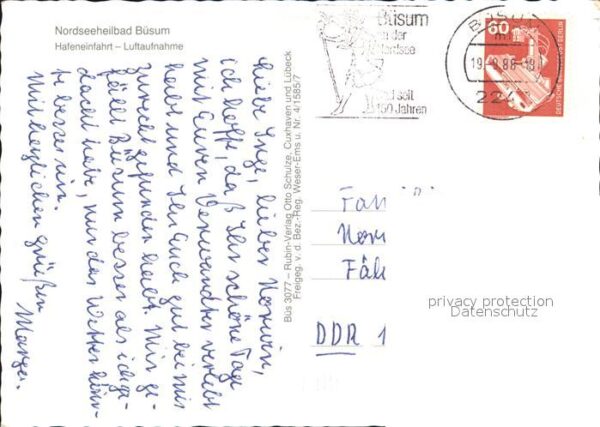 Nordseeheilbad Büsum
Hafeneinfahrt – Luftaufnahme
Liebe Inge, lieber Norwin,
ich hoffe, daß Ihr schöne Tage
mit Euren Verwandten verlebt
habt und Ihr Euch gut bei mir
zurecht gefunden habt. Mir ge-
fällt Büsum besser als ich ge-
dacht habe, nur das Wetter könn-
te besser sein.
Mit herzlichen Grüßen
Büs 3077 – Rubin-Verlag Otto Schulze, Cuxhaven und Lübeck
Freigeg. v. d. Bez.-Reg. Weser-Ems u. Nr. 4/1585/7
Büsum
an der
Nordsee
seit
150 Jahren
BÜSUM
19
88-19
224
60
DEUTSCHE BUNDESPOST BERLIN
Fam
Norw
Fäh
DDR 1
privacy protection
Datenschutz